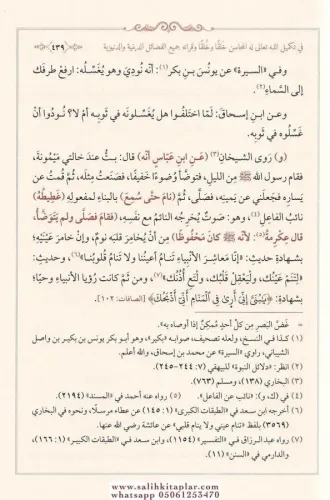 في تكميل الله تعالى له المحاسن خَلقًا وخُلقًا وقرانه جميع الفضائل الدينية والدنيوية
(٤٣٩)
وفي «السيرة» عن يونُسَ بنِ بكر(١): أنَّه نُودِيَ وهو يُغَسِّلُه: ارفعْ طرفَك
إلى السَّماءِ(٢).
وعن ابنِ إسحاقَ: لمَّا اختلَفُوا هل يُغَسِّلونَه في ثوبِه أمْ لا؟ نُودُوا أنْ
غَسِّلُوه في ثوبِه.
(و) رَوى الشَّيخانِ(٣) (عَنِ ابنِ عبَّاسٍ أنَّه) قال: بتُّ عندَ خالتي مَيْمُونةَ،
فقامَ رسولُ الله ﷺ مِن اللَّيلِ، فتوضَّأَ وُضُوءًا خَفيفًا، فصَنعتُ مِثلَه، ثُمَّ قُمتُ عن
يَسارِه فجعَلَني عن يَمِينِه، فصَلَّى، ثُمَّ (نامَ حتَّى سُمِعَ) بالبناءِ لمفعولِه (غَطِيطُهُ)
نائبُ الفاعلِ(٤)، وهو: صَوتٌ يُخرِجُه النَّائمُ مع نفَسِهِ، (فقامَ فصَلَّى ولم يَتَوضَّأْ،
قالَ عِكْرِمةُ(٥): لأنَّه ﷺ كانَ مَحْفُوظًا) مِن أنْ يُخامِرَ قلبَه نومٌ، وإنْ خامَرَ عَيْنَيْهِ؛
بشهادةِ حديثِ: «إنَّا مَعاشِرَ الأنبياءِ تَنامُ أعيُنُنا ولا تَنامُ قُلوبُنا»(٦)، وحديثِ:
«لِتَنَمْ عَينُك، وليَعْقِلْ قَلبُك، ولْتَعِ أُذُنُك»(٧)، ومِن ثَمَّ كانت رُؤيا الأنبياءِ وَحيًا؛
بشهادةِ: ﴿يَٰبُنَيَّ إِنِّيٓ أَرَىٰ فِي ٱلۡمَنَامِ أَنِّيٓ أَذۡبَحُكَ﴾ [الصافات: ١٠٢].
= غَضُّ البَصرِ مِن كلِّ أحدٍ مُمكِنٌ إذا أوصاه به.
(١) كذا في النسخ، ولعله تصحيف، صوابه: «بكير»، وهو أبو بكر يونس بن بكير بن واصل
الشيباني، راوي «السيرة» عن محمد بن إسحاق، والله أعلم.
(٢) انظر: «دلائل النبوة» للبيهقي (٧: ٢٤٤-٢٤٥).
(٣) البخاري (١٣٨)، ومسلم (٧٦٣).
(٤) في (ك، و): «نائب عن الفاعل». (٥) رواه عنه أحمد في «المسند» (٢١٩٤).
(٦) أخرجه ابن سعد في «الطبقات الكبرى» (١: ١٤٥) عن عطاء مرسلًا، ونحوه في البخاري
(٣٥٦٩) بلفظ «تنام عيني ولا ينام قلبي» عن عائشة رضي الله عنها.
(٧) رواه عبد الرزاق في «التفسير» (١١٥٤)، وابن سعد في «الطبقات الكبير» (١: ١٦٦)،
والدارمي في «السنن» (١١).
www.salihkitaplar.com
whatsapp 05061253470